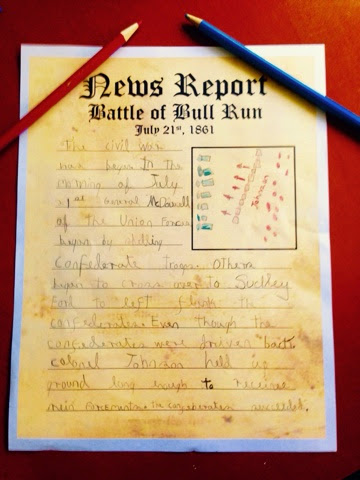 News Report
Battle of Bull Run
July 21st, 1861
The Civil War
has begun In the
morning of July
21st General McDowell
of the Union Forces
began by
Confederate troops. Others
began to cross over to Suckley
Ford to left flank the
confederates. Even though the
confederates were driven back.
colonel Johnson held up
ground long enough to receive
reinforcements. The confederates succeeded.